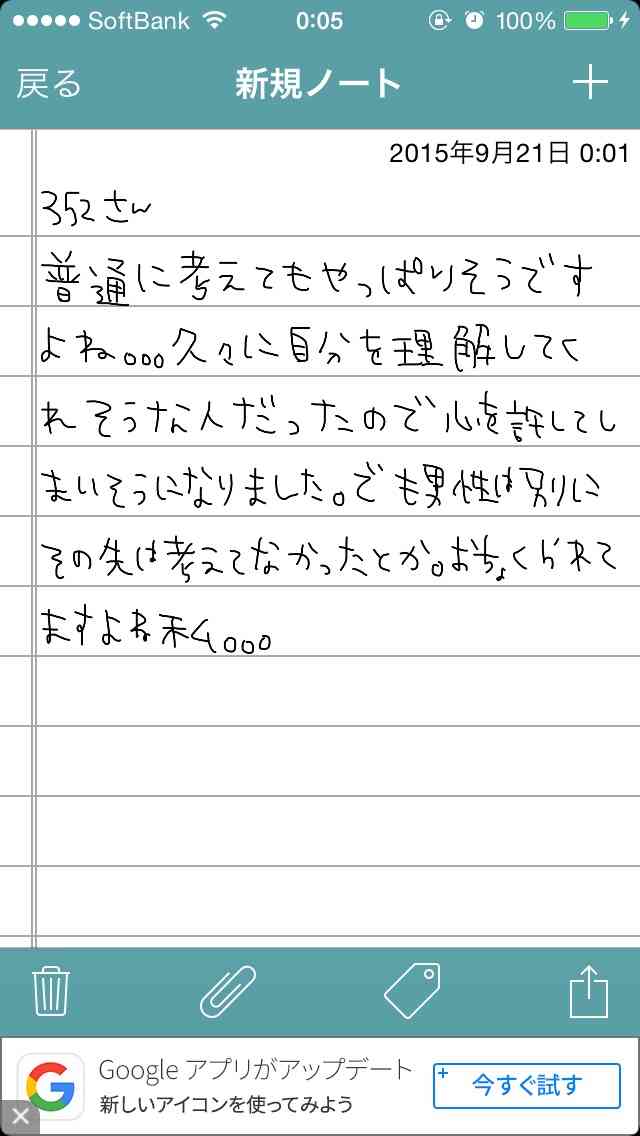 SoftBank 0:05 100%
戻る 新規ノート
2015年9月21日 0:01
352さん
普通に考えてもやっぱりそうです
よね。。。久々に自分を理解してく
れそうな人だったので心を許してし
まいそうになりました。でも男性は別に
その先は考えてなかったとか。おちょくられて
ますよね私。。。
Google アプリがアップデート
新しいアイコンを使ってみよう
今すぐ試す